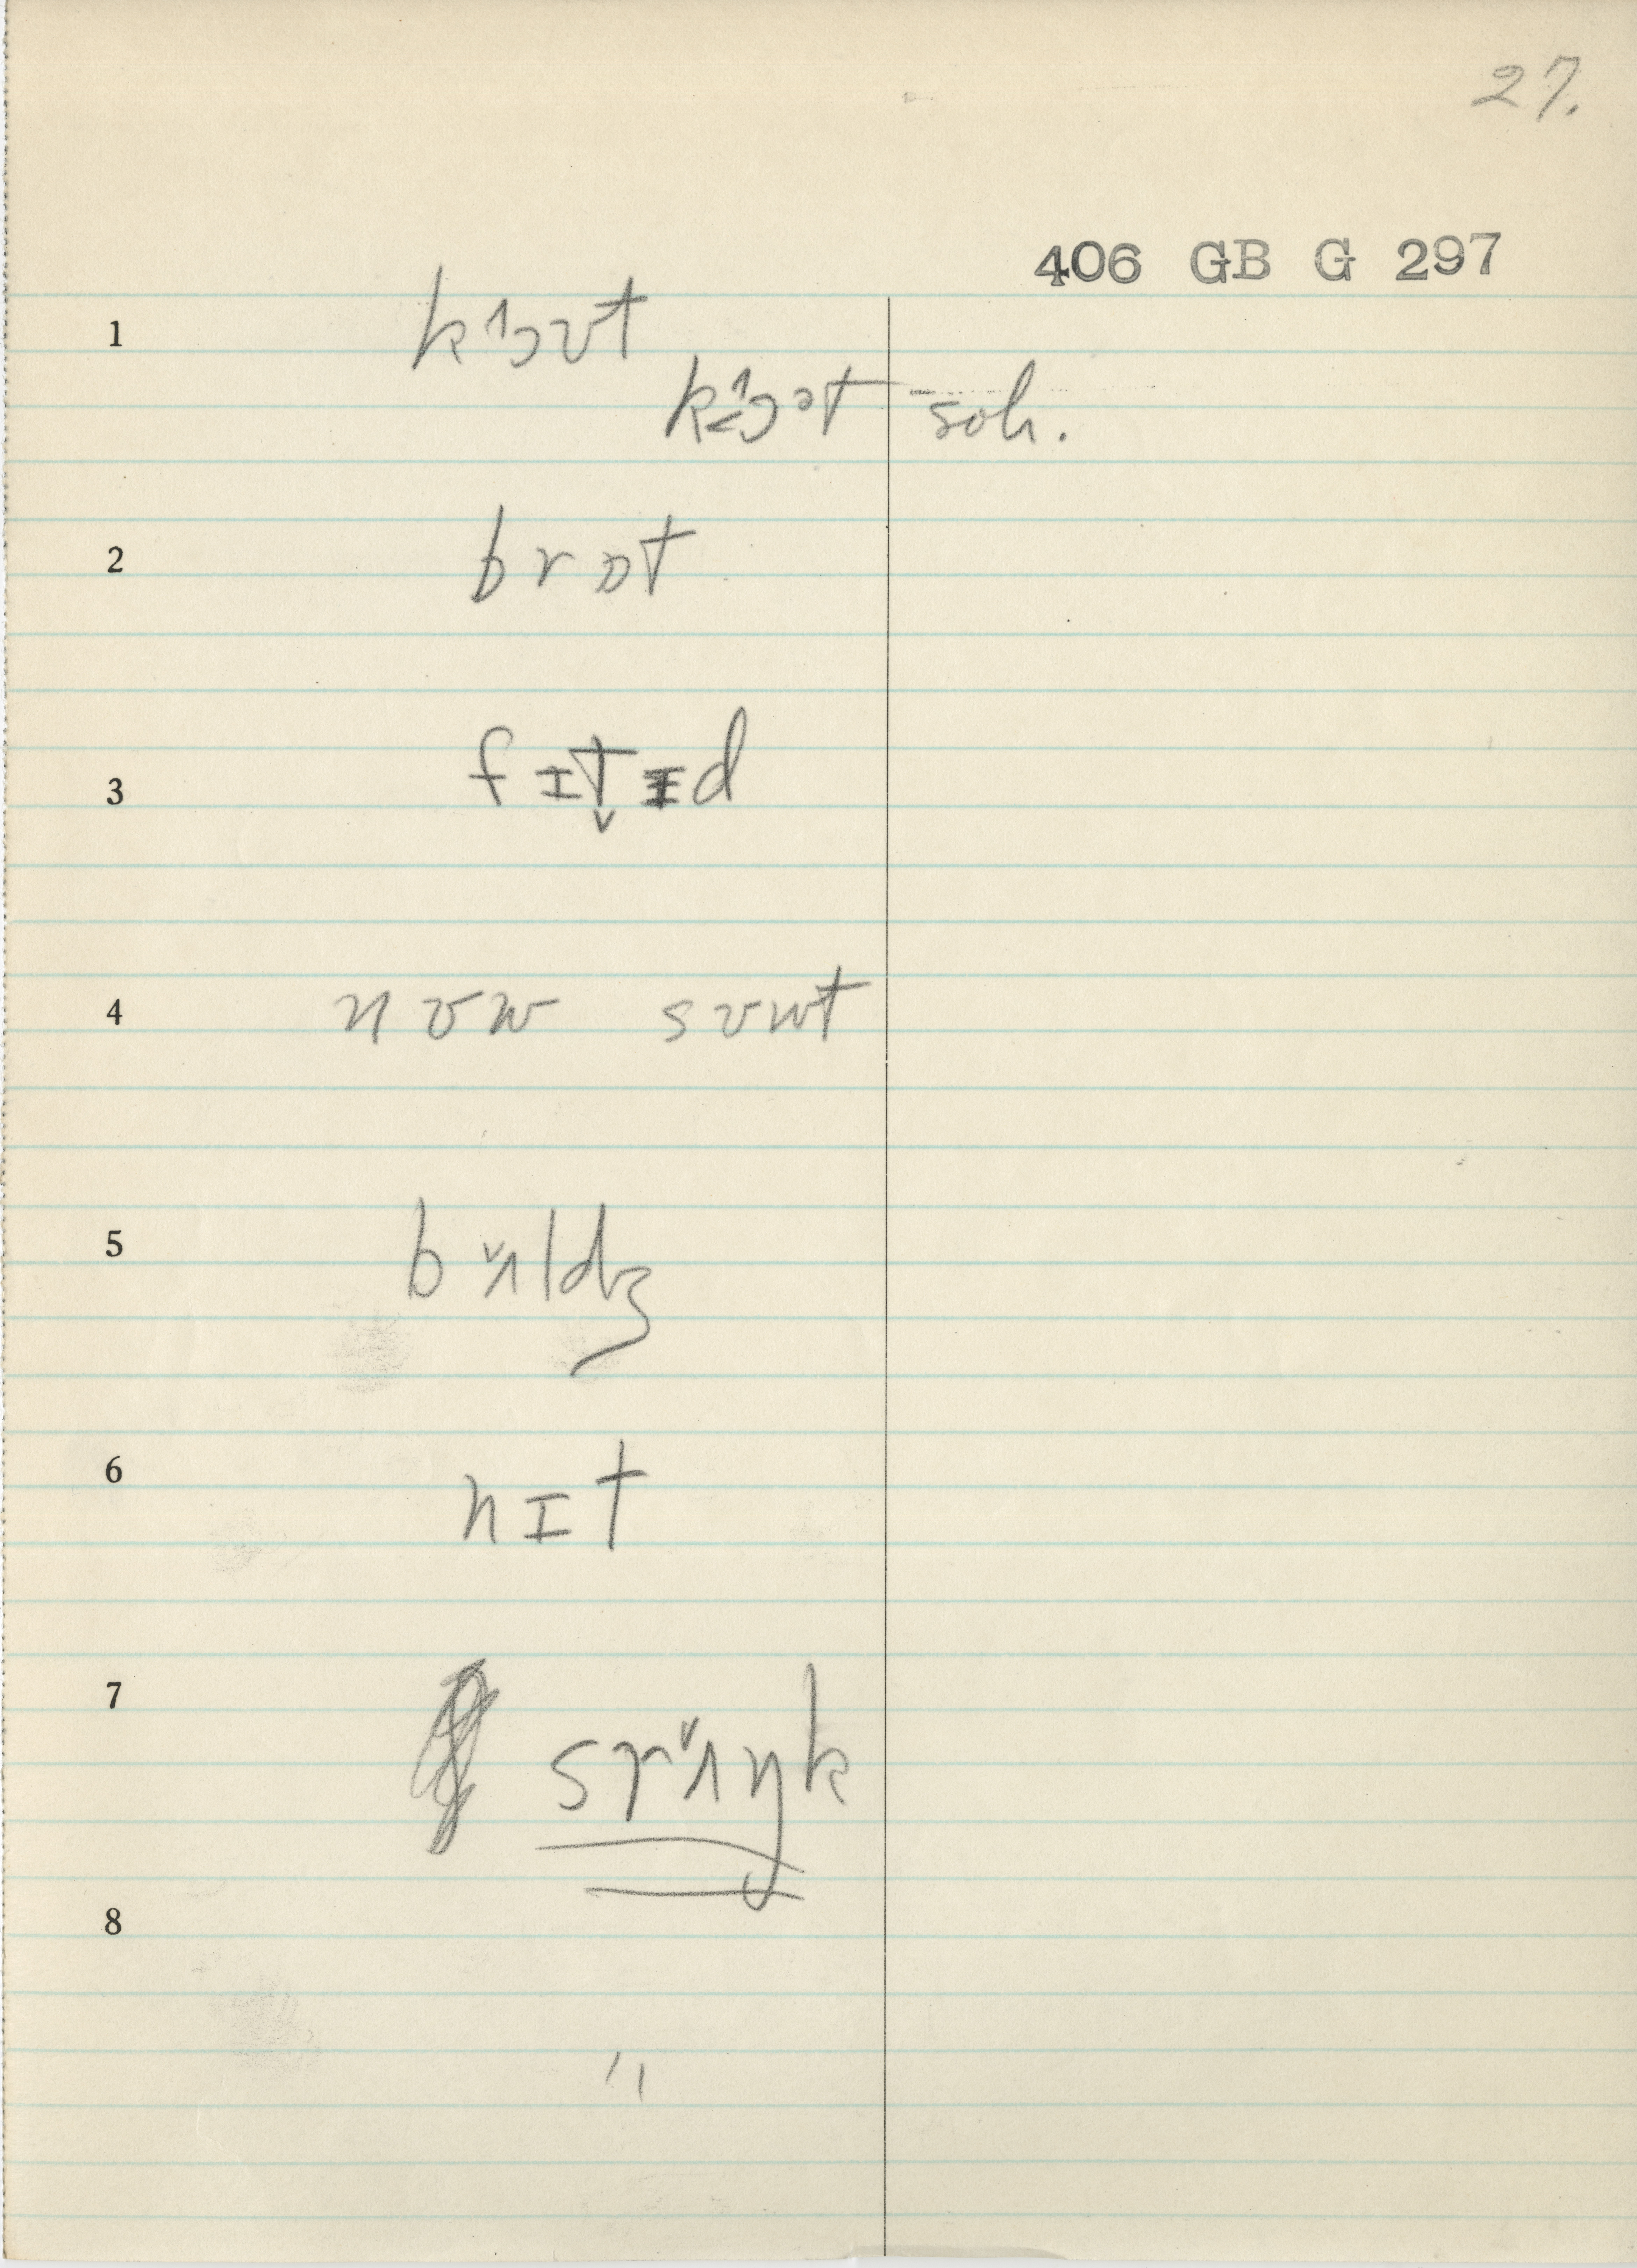 27.
406 GB G 297
1 k˄ɔʊt
k˂˄ɔət soh.
2 brɒt
3 fɪt̬ɪd
4 nʊw sʊwt
5 bʌ̌ldʒ
6 nɪt
7 srʌ̌ŋk
8
"